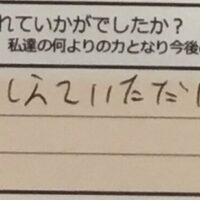 れていかがでしたか？
私達の何よりの力となり今後
しえていただ